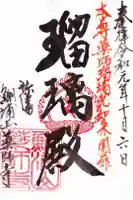 奉拝令和元年十月六日
本尊薬師瑠璃光如来開扉
瑠璃殿
薬師寺